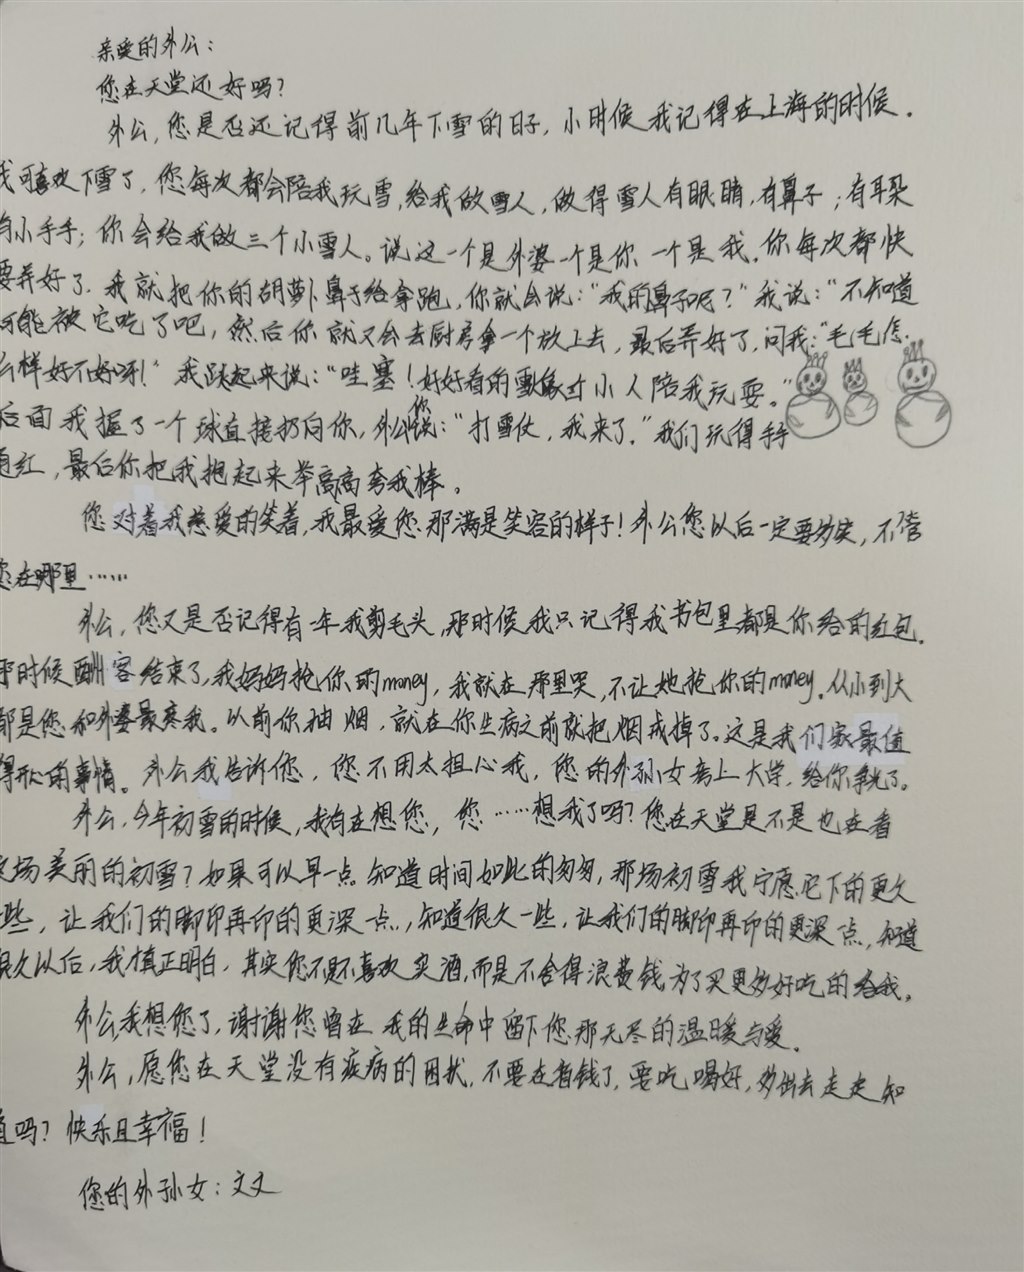 亲爱的外公：
您在天堂还好吗？
外公，您是否还记得前几年下雪的日子，小时候我记得在上海的时候。
我可喜欢下雪了，您每次都会陪我玩雪，给我做雪人，做得雪人有眼睛，有鼻子；有耳朵
有小手手；你会给我做三个小雪人。说这一个是外婆一个是你一个是我。你每次都快
要弄好了，我就把你的胡萝卜鼻子给拿跑，你就会说：“我的鼻子呢？”我说：“不知道
可能被它吃了吧，然后你就又会去厨房拿一个放上去，最后弄好了，问我：“毛毛怎
么样好不好呀！”我跃起来说：“哇塞！好好看的雪小人陪我玩耍。”
后面我握了一个球直接扔向你，外公您说：“打雪仗，我来了。”我们玩得手
通红，最后你把我抱起来举高高夸我棒。
您对着我慈爱的笑着，我最爱您那满是笑容的样子！外公您以后一定要多笑，不管
您在哪里……
外公，您又是否记得有一年我剪毛头，那时候我只记得我书包里都是你给的红包。
那时候酬客结束了，我妈妈抢你的money，我就在那里哭，不让她抢你的money。从小到大
都是您和外婆最疼我。以前你抽烟，就在你生病之前就把烟戒掉了。这是我们家最值
得开心的事情。外公我告诉您，您不用太担心我，您的外孙女考上大学，给你争光了。
外公，今年初雪的时候，我有在想您，您……想我了吗？您在天堂是不是也在看
这场美丽的初雪？如果可以早一点知道时间如此的匆匆，那场初雪我宁愿它下的更久
一些，让我们的脚印再印的更深一点，知道很久一些，让我们的脚印再印的更深一点，知道
很久以后，我才真正明白，其实您不是不喜欢买酒，而是不舍得浪费钱，为了买更多好吃的给我。
外公，我想您了，谢谢您曾在我的生命中留下您那无尽的温暖与爱。
外公，愿您在天堂没有疾病的困扰，不要在省钱了，要吃喝好，多出去走走知
道吗？快乐且幸福！
您的外孙女：文文